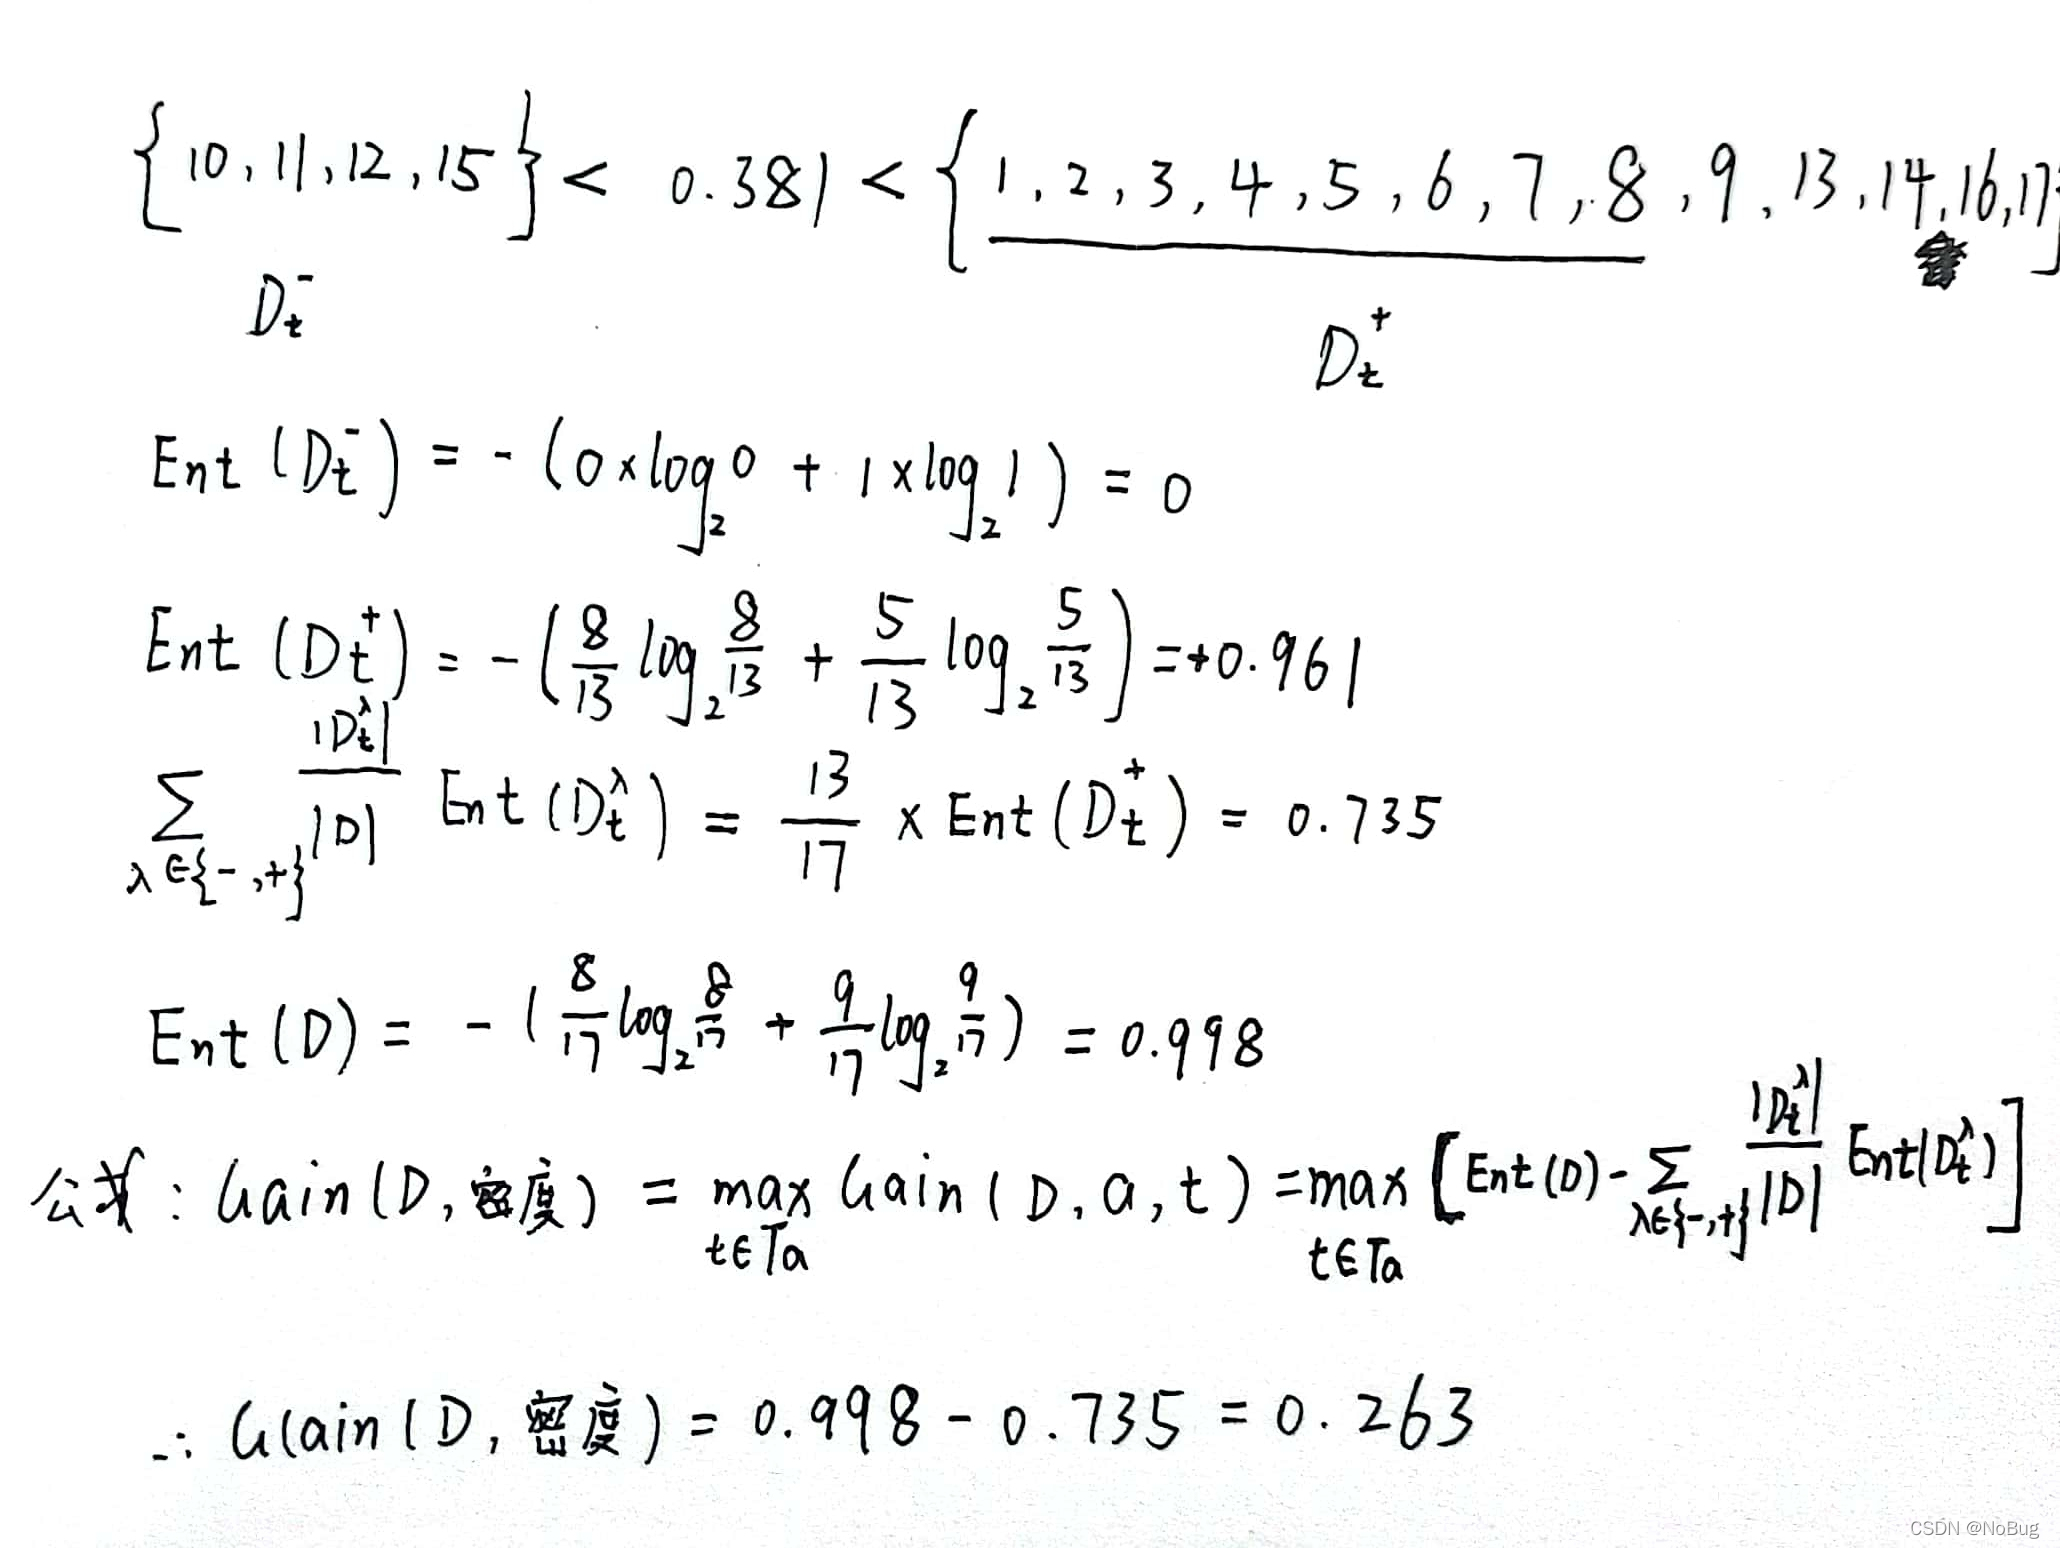 {10,11,12,15} < 0.381 < {1,2,3,4,5,6,7,8,9,13,14,16,17}
D_t^- D_t^+
Ent(D_t^-) = -(0×log_2 0 + 1×log_2 1) = 0
Ent(D_t^+) = -(8/13 log_2 8/13 + 5/13 log_2 5/13) = +0.961
∑_{λ∈{-,+}} |D_t^λ|/|D| Ent(D_t^λ) = 13/17 × Ent(D_t^+) = 0.735
Ent(D) = -(8/17 log_2 8/17 + 9/17 log_2 9/17) = 0.998
公式: Gain(D,密度) = max_{t∈Ta} Gain(D,a,t) = max_{t∈Ta} [Ent(D) - ∑_{λ∈{-,+}} |D_t^λ|/|D| Ent(D_t^λ)]
∴ Gain(D,密度) = 0.998 - 0.735 = 0.263
CSDN @NoBug